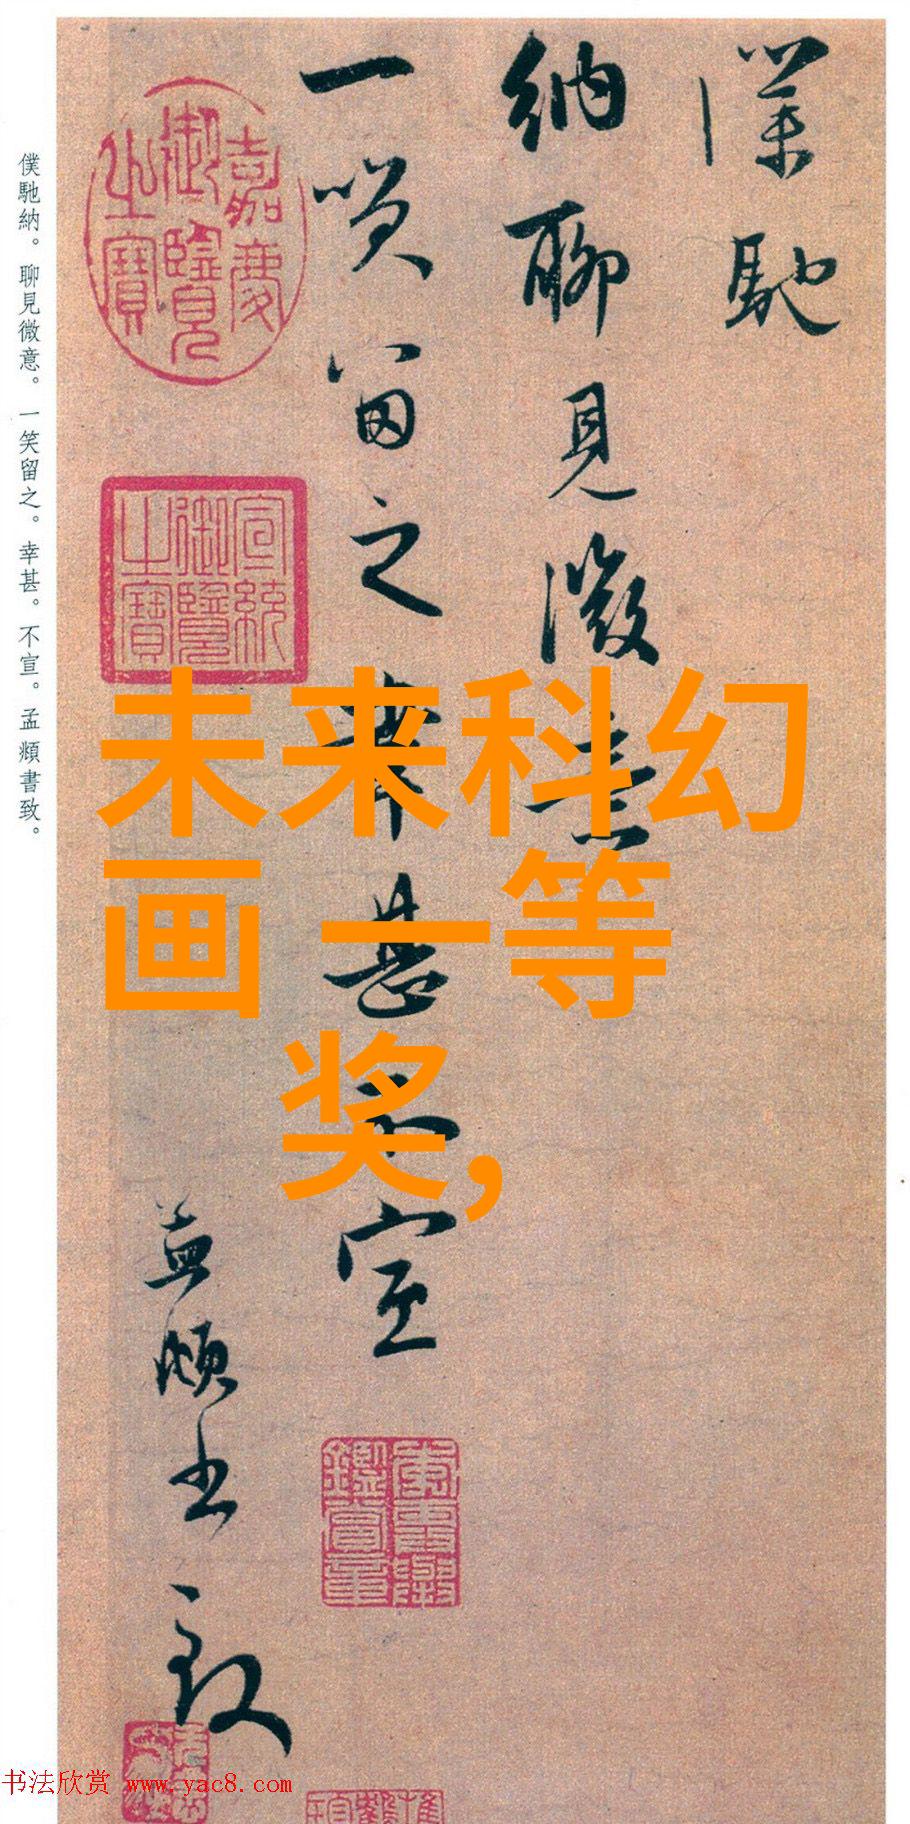 僕馳
納聊見微意
一笑留之幸甚不宣
孟頫書致
嘉慶御覽之寶
宣統御覽之寶
僕馳納。聊見微意。一笑留之。幸甚。不宣。孟頫書致。
未来科幻
画 一等
奖,
书法欣赏 www.yac8.com